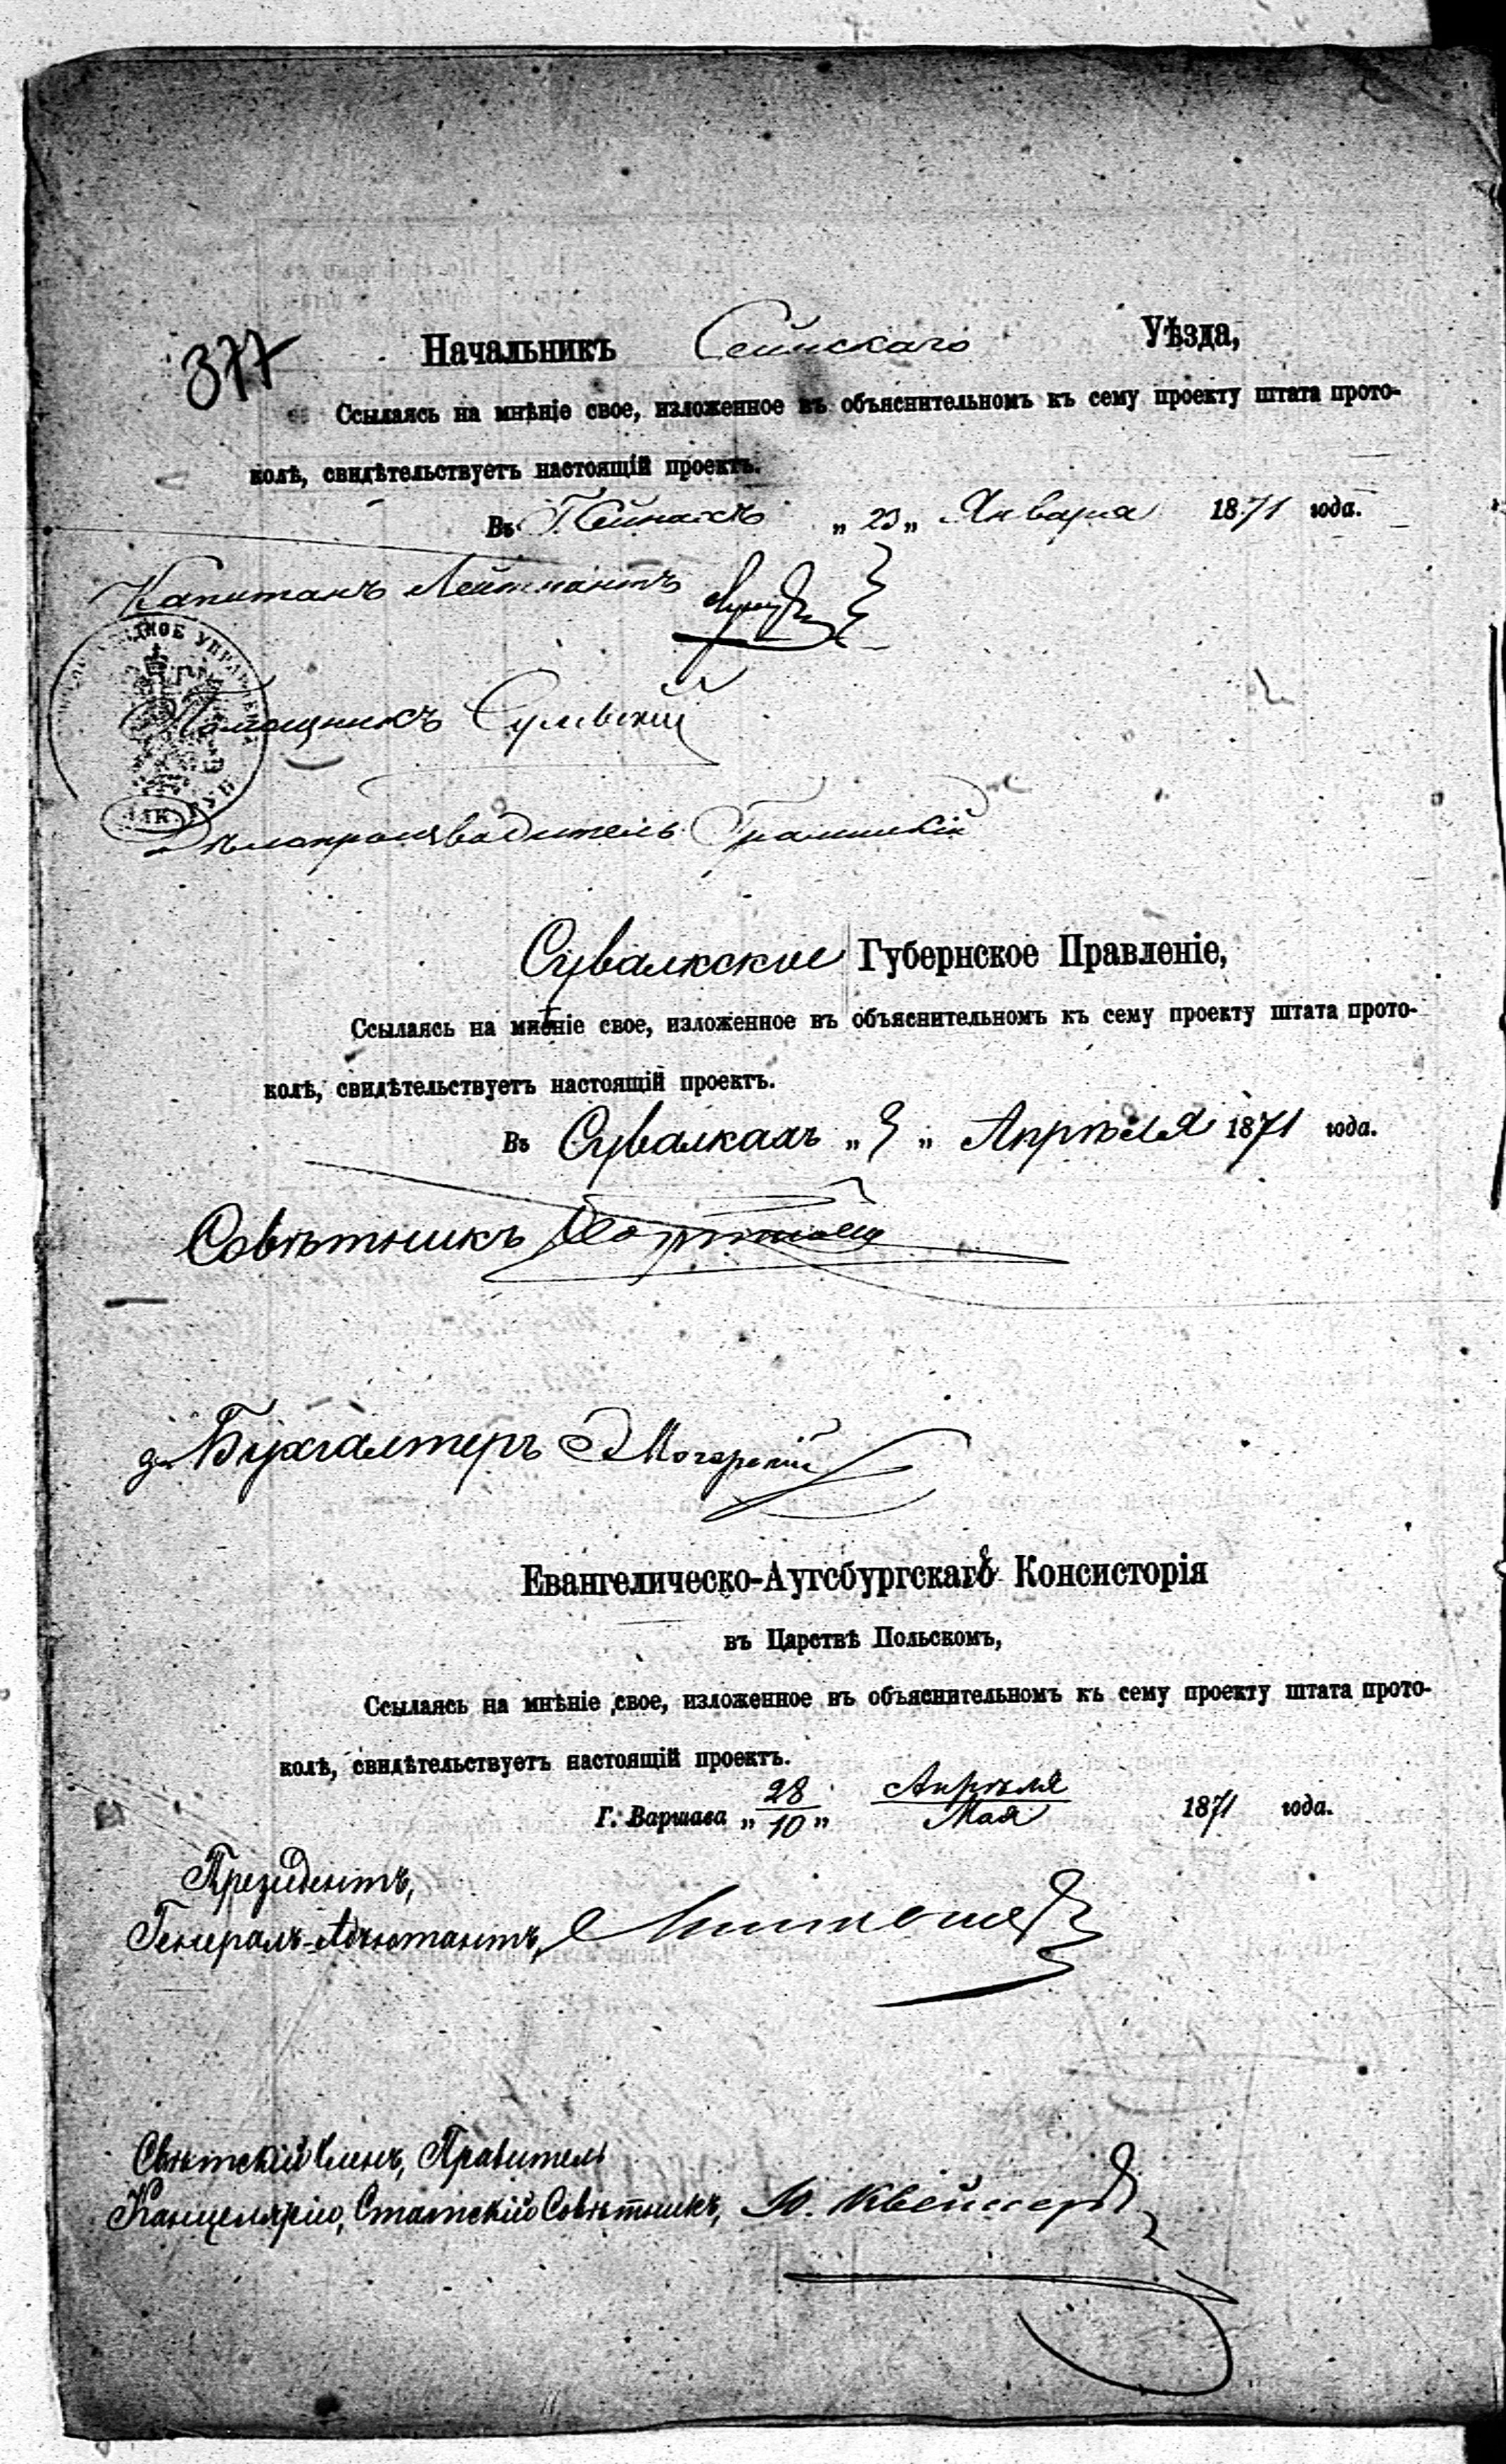 377
Начальникъ Сейнскаго Уѣзда,
Ссылаясь на мнѣніе свое, изложенное въ объяснительномъ къ сему проекту штата прото-
колѣ, свидѣтельствуетъ настоящій проектъ.
Въ Г. Сейнахъ „ 23 „ Января 1871 года.
Капитанъ Лейтенантъ
Помощникъ
Дѣлопроизводитель
Сувалкское Губернское Правленіе,
Ссылаясь на мнѣніе свое, изложенное въ объяснительномъ къ сему проекту штата прото-
колѣ, свидѣтельствуетъ настоящій проектъ.
Въ Сувалкахъ „ „ Апрѣля 1871 года.
Совѣтникъ
Бухгалтеръ
Евангелическо-Аугсбургская Консисторія
въ Царствѣ Польскомъ,
Ссылаясь на мнѣніе свое, изложенное въ объяснительномъ къ сему проекту штата прото-
колѣ, свидѣтельствуетъ настоящій проектъ.
Г. Варшава „ 28/10 „ Апрѣля/Мая 1871 года.
Президентъ,
Генералъ-Адъютантъ,
Свѣтскій Членъ, Правитель
Канцеляріи, Статскій Совѣтникъ,